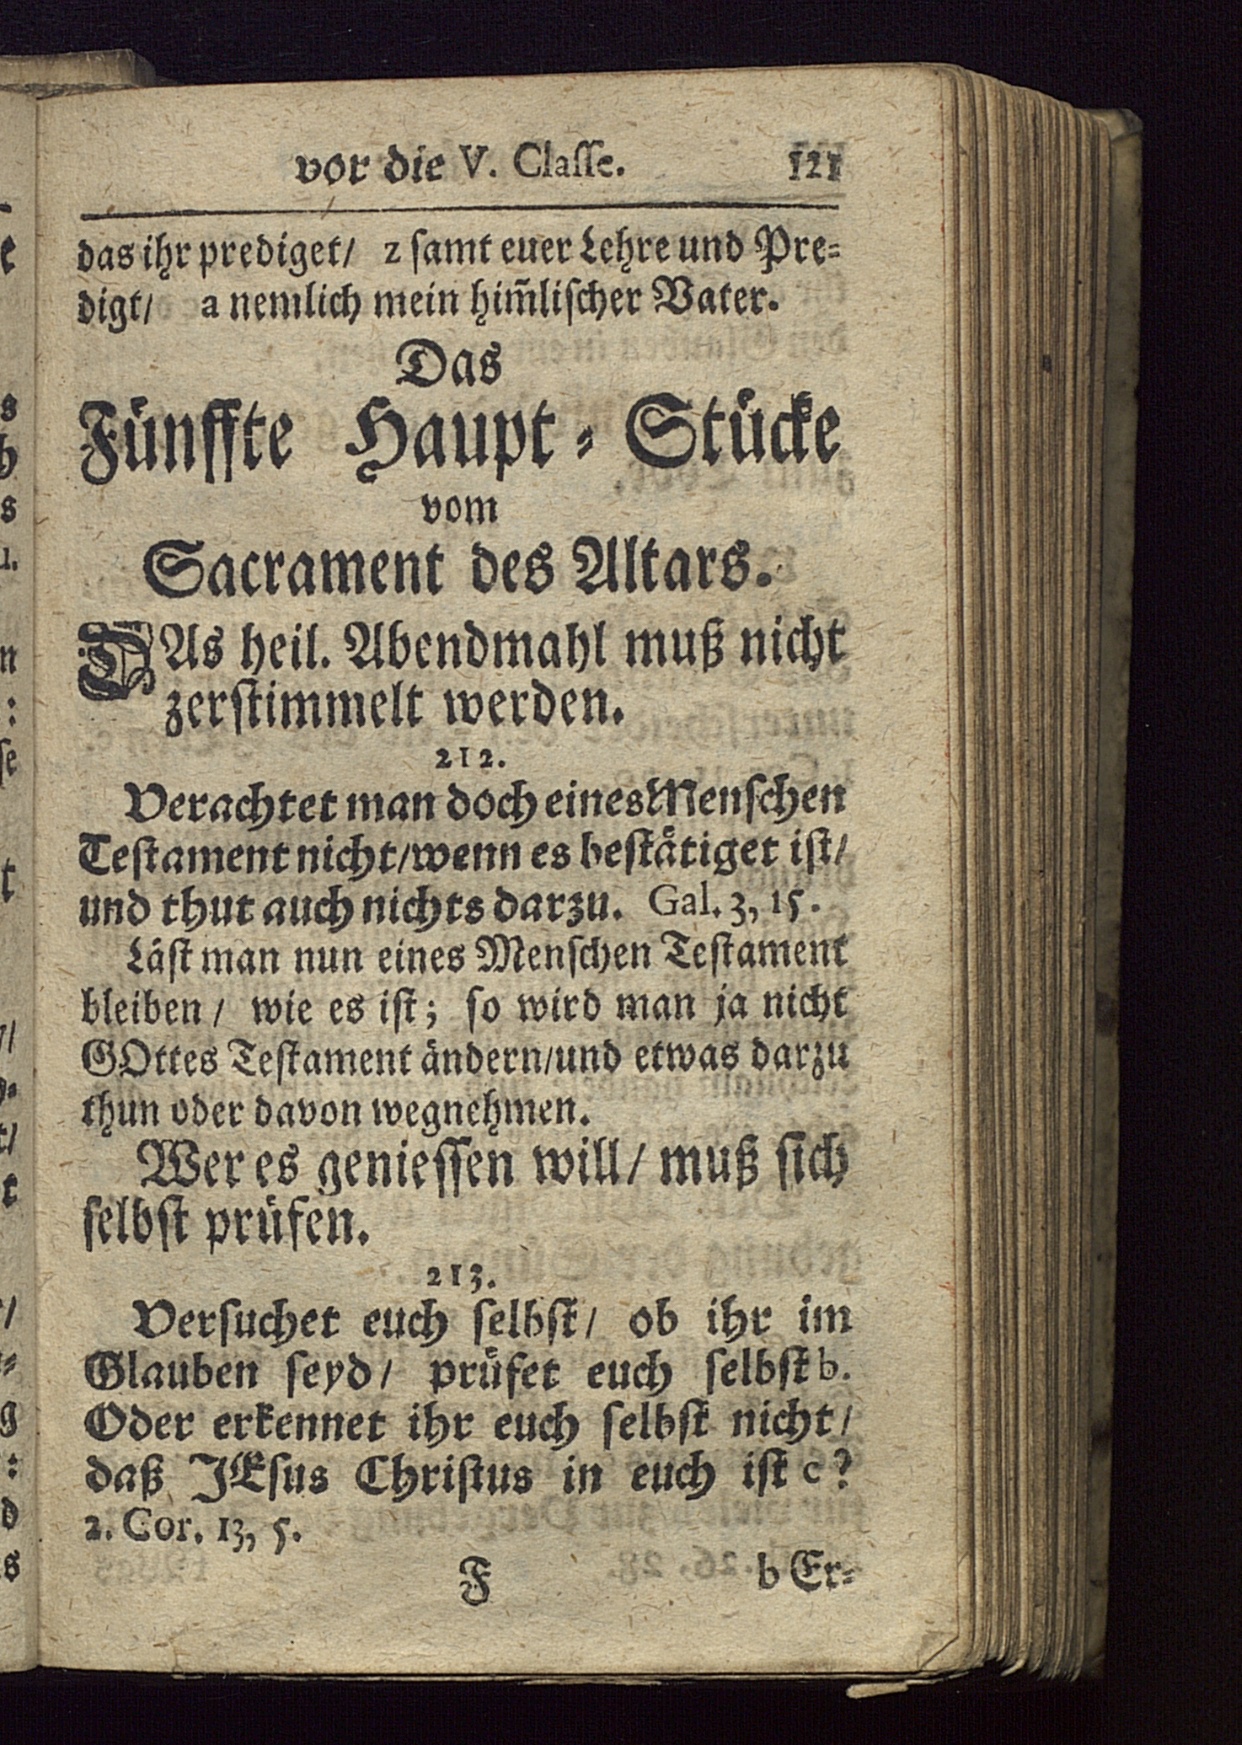 vor die V. Classe. 121
das ihr prediget/ z samt euer Lehre und Pre-
digt/ a nemlich mein him̃lischer Vater.
Das
Fünffte Haupt-Stücke
vom
Sacrament des Altars.
DAs heil. Abendmahl muß nicht
zerstimmelt werden.
212.
Verachtet man doch eines Menschen
Testament nicht/wenn es bestätiget ist/
und thut auch nichts darzu. Gal. 3, 15.
Läst man nun eines Menschen Testament
bleiben/ wie es ist; so wird man ja nicht
GOttes Testament ändern/und etwas darzu
thun oder davon wegnehmen.
Wer es geniessen will/ muß sich
selbst prüfen.
213.
Versuchet euch selbst/ ob ihr im
Glauben seyd/ prüfet euch selbst b.
Oder erkennet ihr euch selbst nicht/
daß JEsus Christus in euch ist c?
2. Cor. 13, 5.
F b Er-